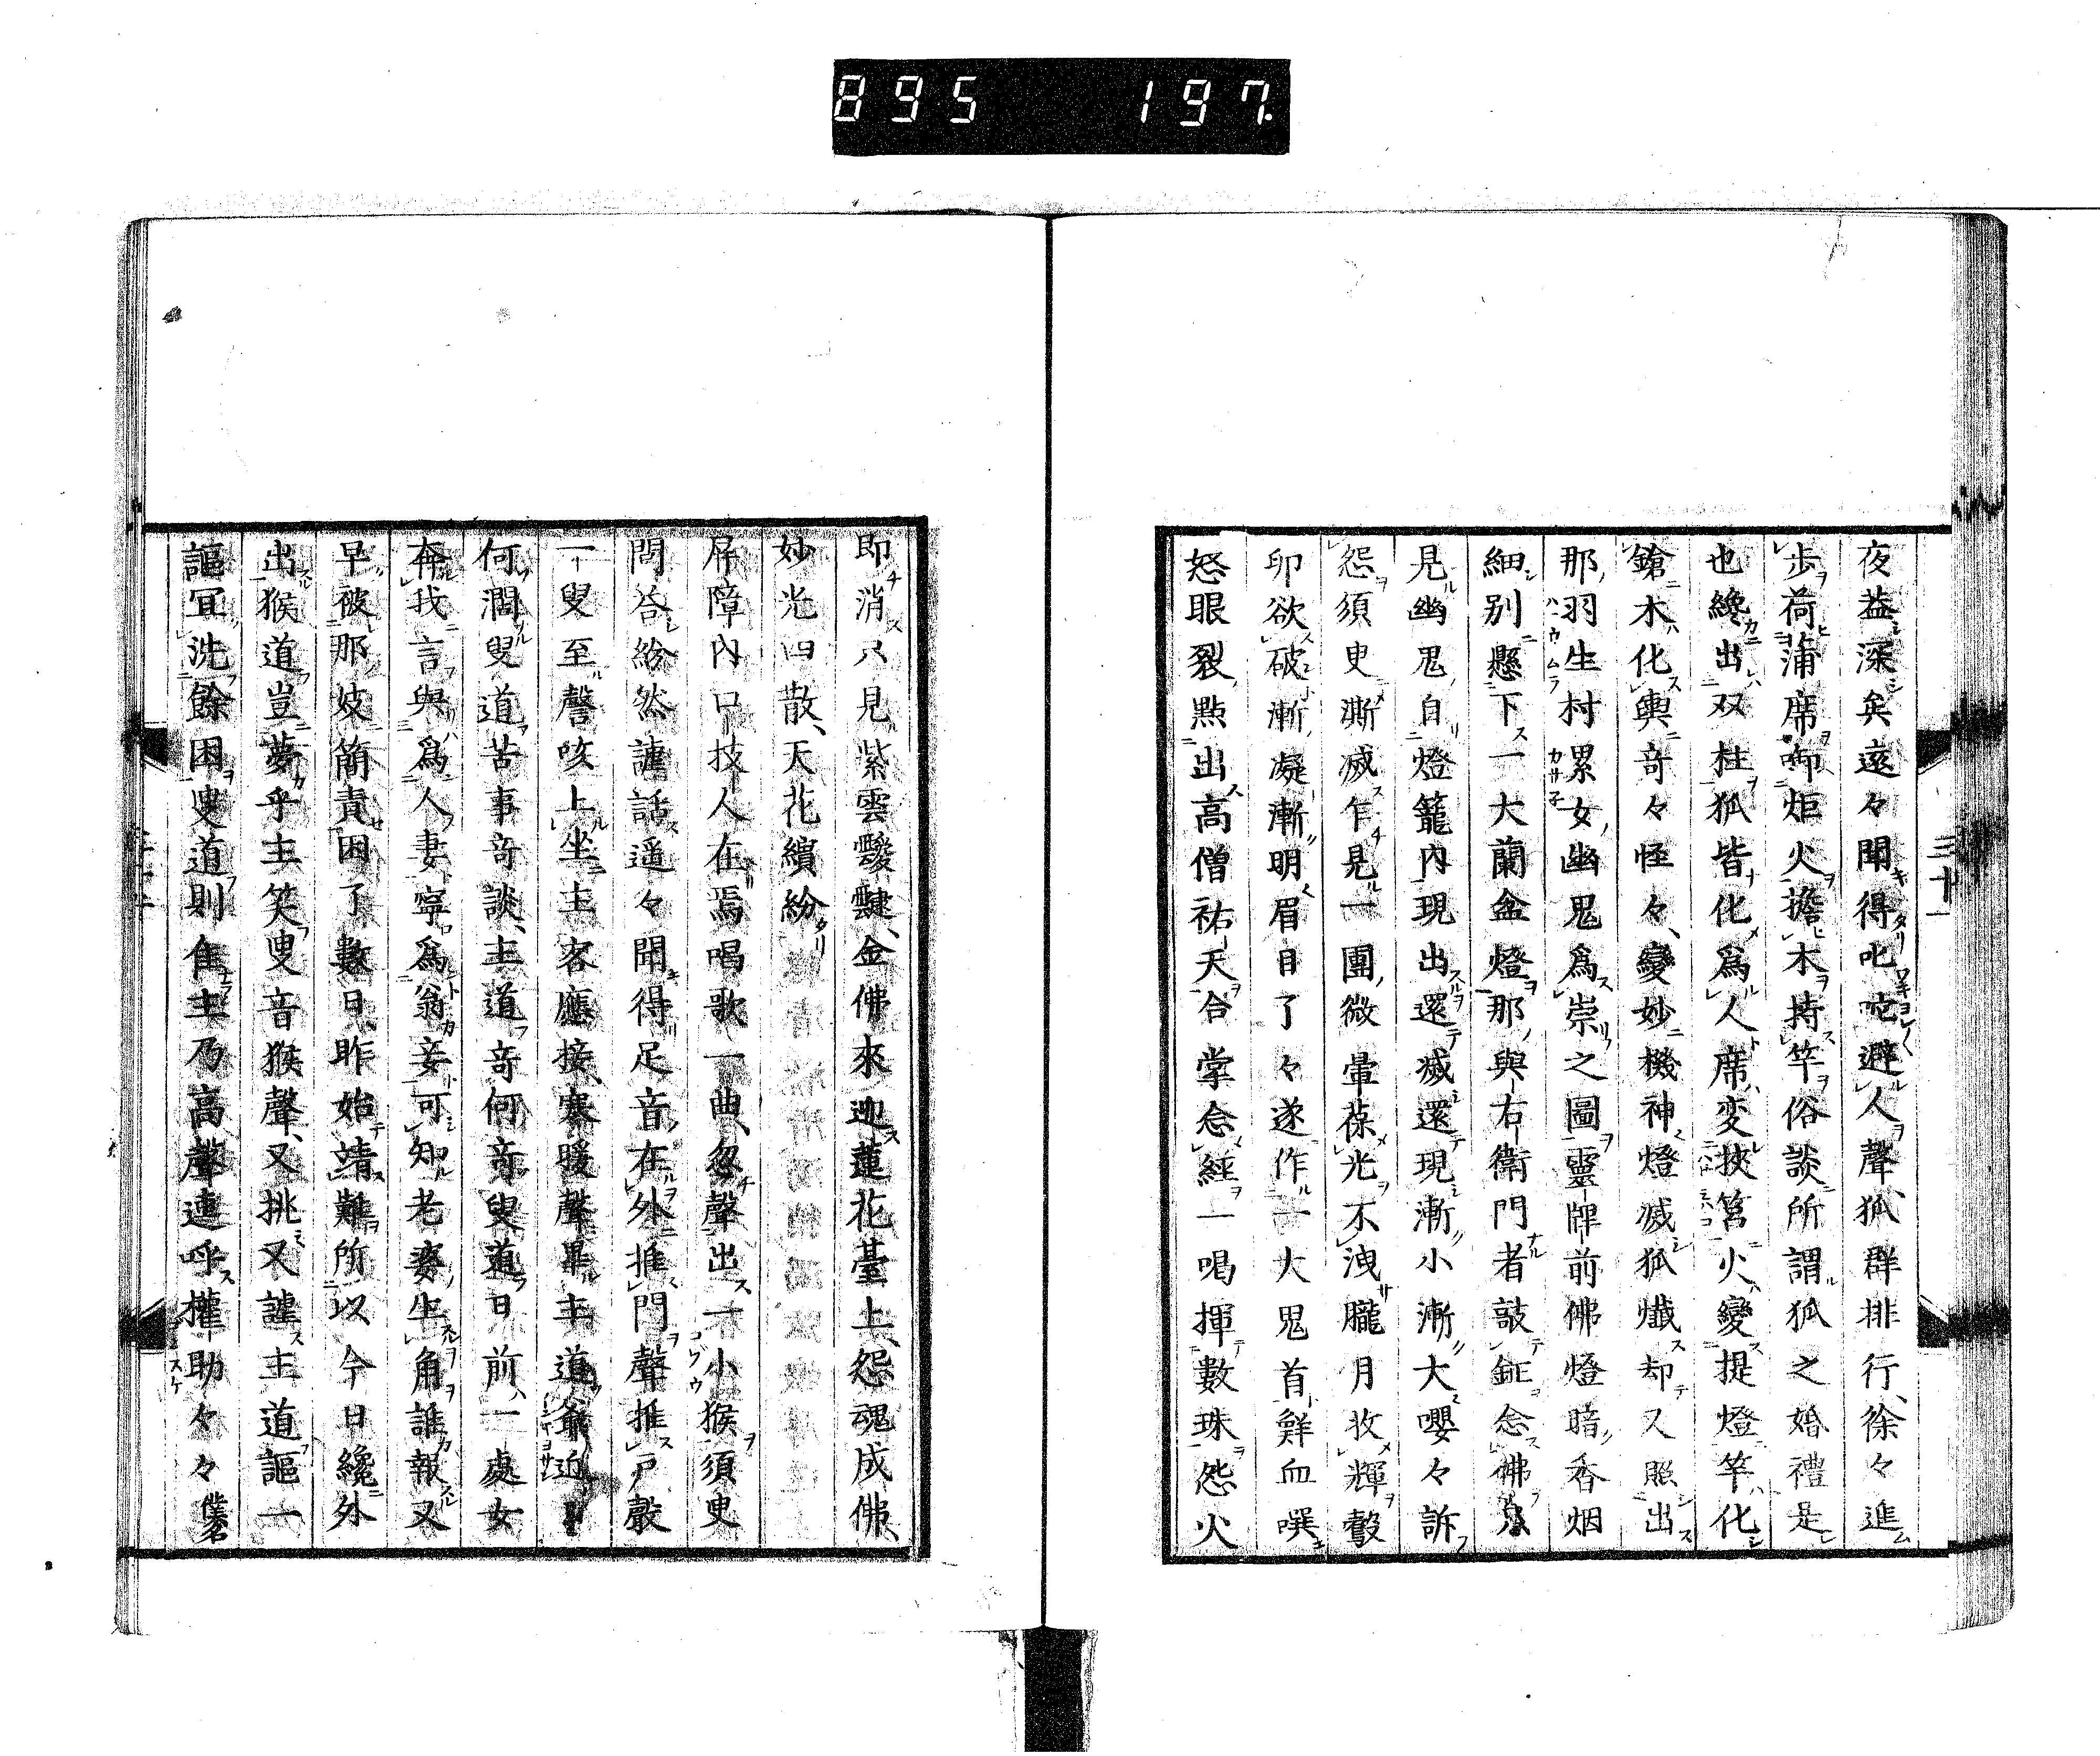 895 197.
三十一
夜益深矣遠々聞得叱咜避人聲、狐群排行、徐々進
步荷蒲席啣炬火擔木持竿俗談所謂狐之婚禮是
也纔出双柱狐皆化爲人席変挾筥火變提燈竿化
鎗木化輿奇々怪々、變妙機神燈滅狐殱却又照出
那羽生村累女幽鬼爲祟之圖靈牌前佛燈暗香烟
細別懸下一大蘭盆燈那與右衛門者敲鉦念佛
見幽鬼自燈籠內現出還滅還現漸小漸大嚶々訴
怨須臾漸滅乍見一團微暈葆光不洩朧月收輝鷇
卵欲破漸凝漸明眉目了々遂作一大鬼首鮮血噀
怒眼裂點出高僧祐天合掌念經一喝揮數珠怨火
即消只見紫雲靉靆、金佛來迎蓮花臺上、怨魂成佛、
妙光四散、天花繽紛
屏障內口技人在焉唱歌一曲、忽聲出一小猴須臾
問答紛然謔話遥々聞得足音在外推門聲推戸聲
一叟至謦咳上坐主客應接、寒暖聲畢主道爺近
何濶叟道苦事奇談、主道奇何奇叟道日前一處女
奔我言與爲人妻寧爲翁妾可知老婆生角誰報又
早被那妓簡責困了數日昨始靖難所以今日纔外
出猴道豈夢乎主笑叟音猴聲、又挑又謔主道謳一
謳冝洗餘困叟道則隹主乃高聲連呼權助々々